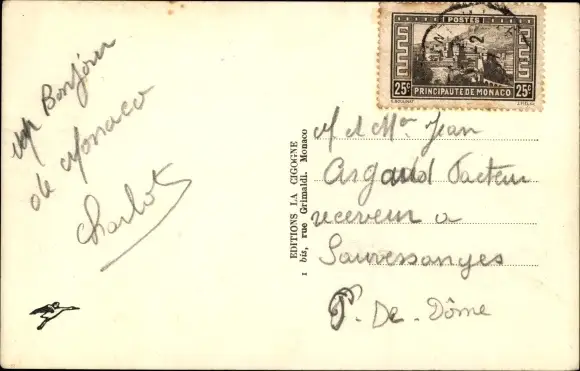 un Bonjour
de Monaco
Charlot
EDITIONS LA CIGOGNE
1 bis, rue Grimaldi. Monaco
POSTES
25c PRINCIPAUTE DE MONACO 25c
M et Mme Jean
Argauld Facteur
receveur a
Sauvessanges
P. De. Dôme